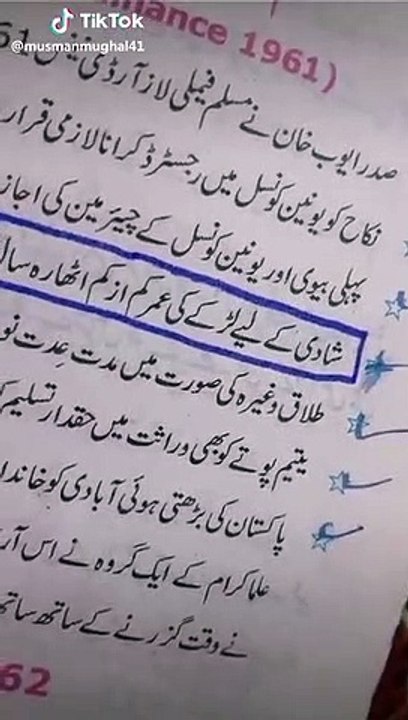 TikTok
@musmanmughal41
nance 1961)
صدر ایوب خان نے مسلم فیملی لاز آرڈی نینس 61
نکاح کو یونین کونسل میں رجسٹرڈ کرانا لازمی قرار
پہلی بیوی اور یونین کونسل کے چیئرمین کی اجاز
شادی کے لیے لڑکے کی عمر کم از کم اٹھارہ سال
طلاق وغیرہ کی صورت میں مدت عدت نو
یتیم پوتے کو بھی وراثت میں حقدار تسلیم ک
پاکستان کی بڑھتی ہوئی آبادی کو خاندا
علما کرام کے ایک گروہ نے اس آر
نے وقت گزرنے کے ساتھ ساتھ
62